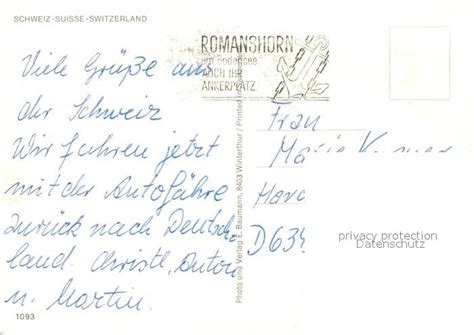 SCHWEIZ-SUISSE-SWITZERLAND
ROMANSHORN
am Bodensee
AUCH IHR
ANKERPLATZ
Viele Grüße aus
der Schweiz
Wir fahren jetzt
mit der Autofähre
zurück nach Deutsch-
land. Christl, Anton
u. Martin.
1093
Photo und Verlag E. Baumann, 8403 Winterthur / Printed in Switzerland
Frau
Marie
D 634
privacy protection
Datenschutz